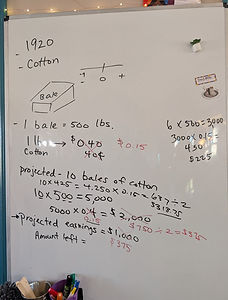 - 1920
- Cotton
-1 0 +
Bale
- 1 bale = 500 lbs.
1 lb → $0.40 $0.15
Cotton 40¢
6 x 500 = 3000
3000 x 0.15 =
450
$225
projected - 10 bales of cotton
10 x 425 = 4,250 x 0.15 = 637 ÷ 2
$318.75
10 x 500 = 5,000
5000 x 0.4 = $2,000
0.15
$750 ÷ 2 = $375
→ Projected earnings = $1,000
Amount left = $375